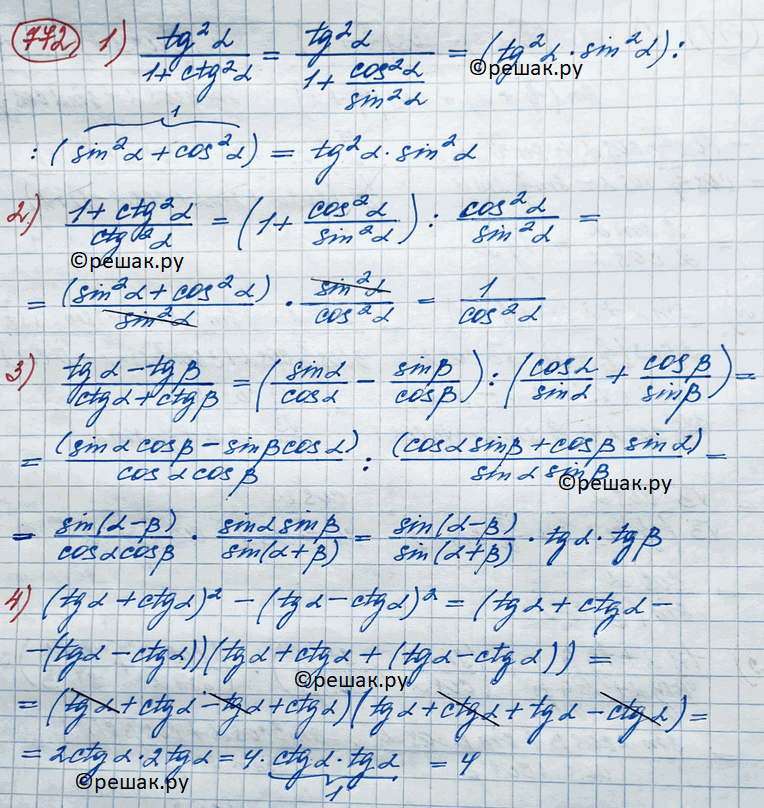 772 1) tg²α / (1 + ctg²α) = tg²α / (1 + cos²α/sin²α) = (tg²α · sin²α) :
©решак.ру
1
: (sin²α + cos²α) = tg²α · sin²α
2) (1 + ctg²α) / ctg²α = (1 + cos²α/sin²α) : cos²α/sin²α =
©решак.ру
= (sin²α + cos²α)/sin²α · sin²α/cos²α = 1/cos²α
3) (tgα − tgβ)/(ctgα + ctgβ) = (sinα/cosα − sinβ/cosβ) : (cosα/sinα + cosβ/sinβ) =
= (sinα cosβ − sinβ cosα)/(cosα cosβ) : (cosα sinβ + cosβ sinα)/(sinα sinβ) =
©решак.ру
= sin(α−β)/(cosα cosβ) · sinα sinβ/sin(α+β) = sin(α−β)/sin(α+β) · tgα · tgβ
4) (tgα + ctgα)² − (tgα − ctgα)² = (tgα + ctgα −
− (tgα − ctgα))(tgα + ctgα + (tgα − ctgα)) =
©решак.ру
= (tgα + ctgα − tgα + ctgα)(tgα + ctgα + tgα − ctgα) =
= 2ctgα · 2tgα = 4 · ctgα · tgα = 4
1
©решак.ру